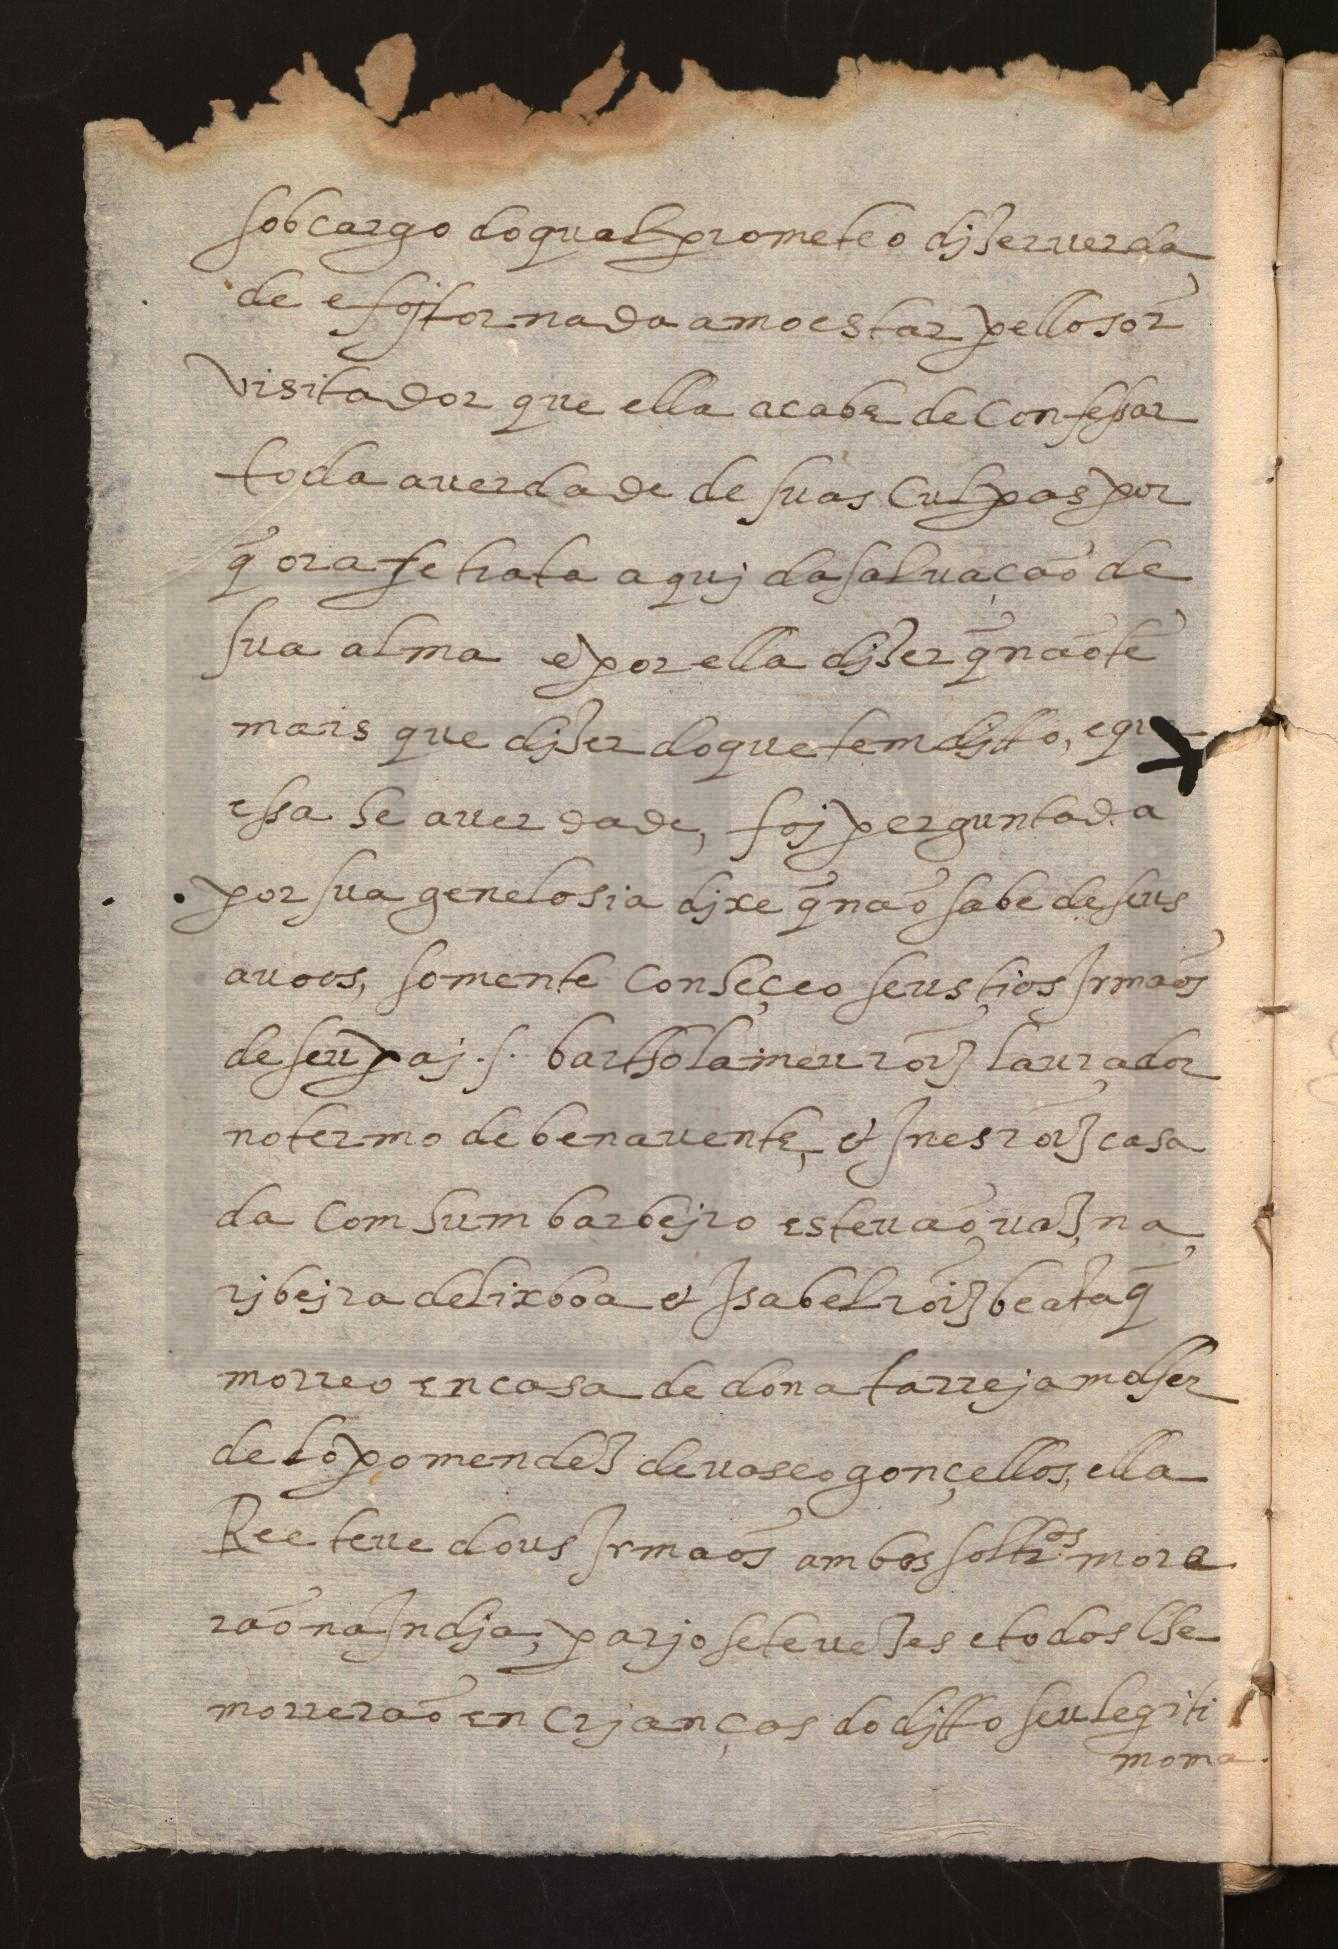 sob cargo do qual prometeo djzer uerda
de e foj tornada amoestar pello sõr
visitador que ella acabe de confessar
toda a uerdade de suas culpas por
q̃ ora se trata aquj da saluação de
sua alma e por ella djzer q̃ não tẽ
mais que djzer do que tem djtto, e que
essa he a uerdade, foj perguntada
por sua genelosia djxe q̃ não sabe de seus
auoos, somente conheçeo seus tios Irmãos
de seu paj .s. bartholameu roĩz laurador
no termo de benauente, et Ines roĩz casa
da com hum barbejro esteuão uaz, na
rjbejra de lixboa et Isabel roĩz beata q̃
morreo en casa de dona tarreja molher
de lopo mendez de uascogonçellos, ella
Ree teue dous Irmãos ambos soltr.os more
rão na Indja, parjo sete uezes e todos lhe
morrerão en crjanças do djtto seu legiti
mo ma